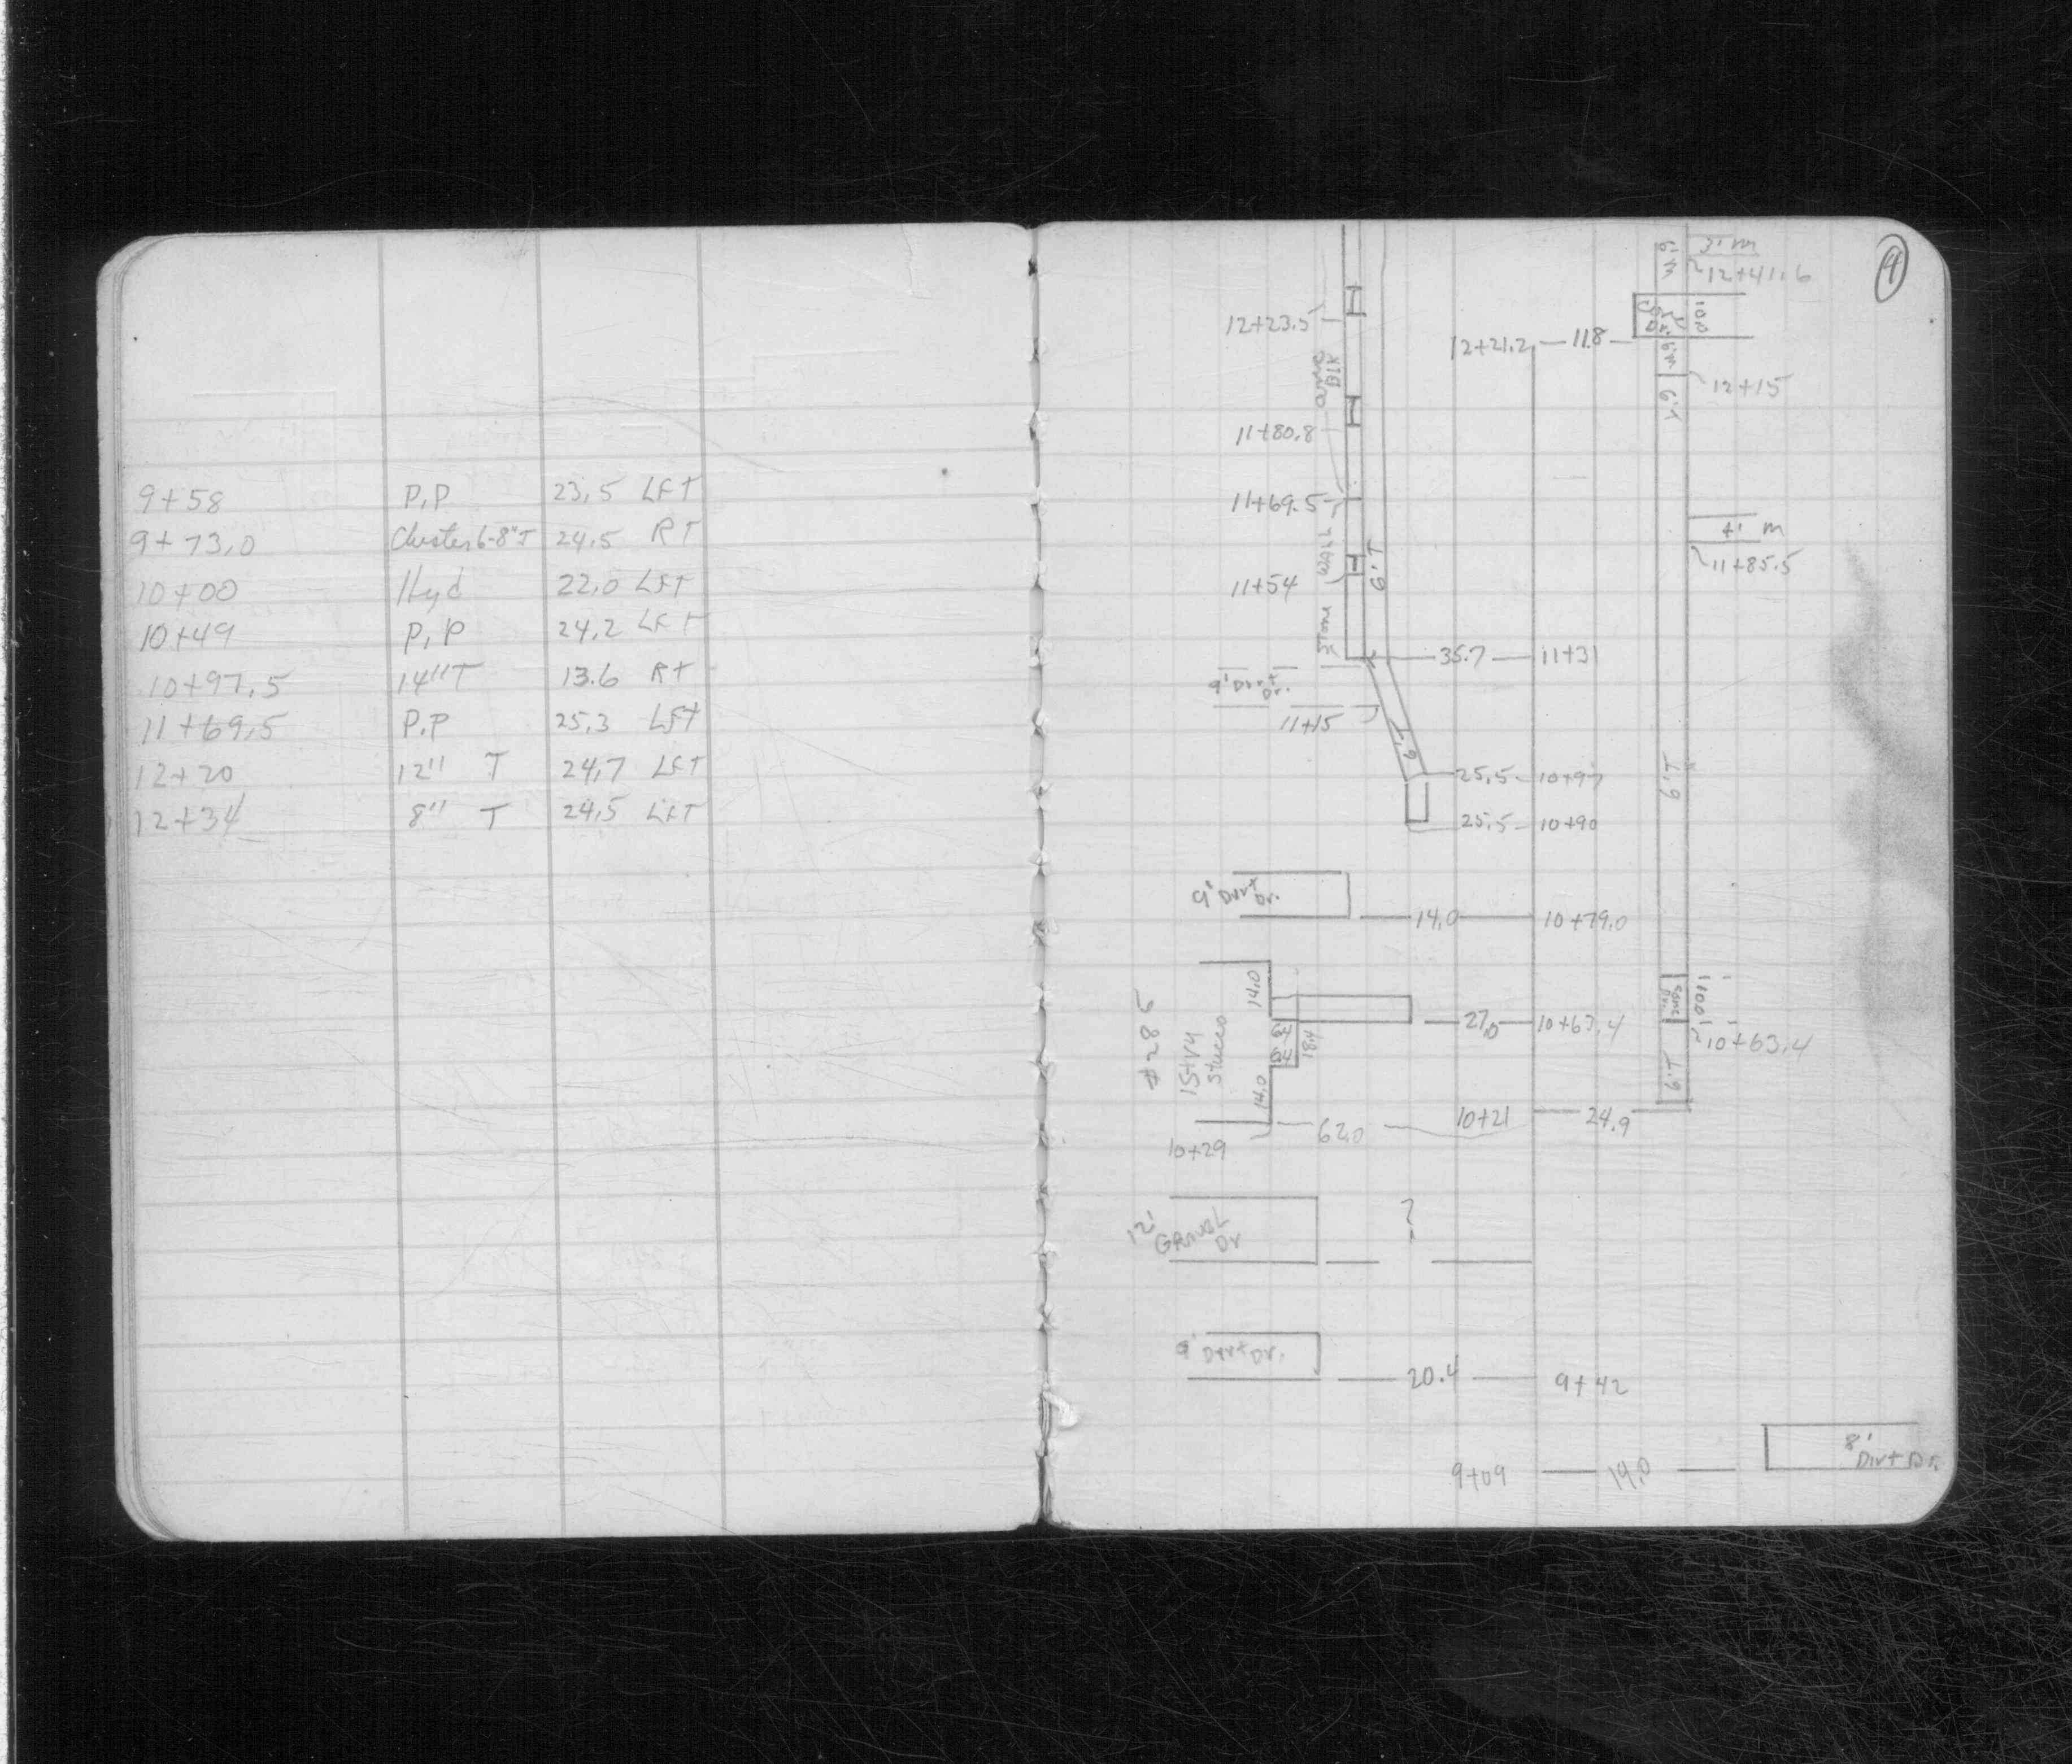 9+58 P.P 23.5 LFT
9+73.0 Cluster 6-8"T 24.5 RT
10+00 Hyd 22.0 LFT
10+49 P.P 24.2 LFT
10+97.5 14"T 13.6 RT
11+69.5 P.P 25.3 LFT
12+20 12" T 24.7 LFT
12+34 8" T 24.5 LFT
4
3' M
6' M
12+41.6
12+23.5
12+21.2 11.8
6' M
12+15
6' T
Blk
11+80.8
11+69.5
4' M
11+85.5
Wall
6' T
11+54
Stone
35.7 11+31
9' Dirt Dr.
11+15
6' T
25.5 10+97
6' T
25.5 10+90
9' Dirt Dr.
14.0 10+79.0
14.0
27.0 10+63.4
10+63.4
#285
1 Story Stucco
18.4
14.0
6' T
10+21 24.9
62.0
10+29
12' Gravel Dr
?
9' Dirt Dr.
20.4 9+42
8' Dirt Dr.
9+09 19.0